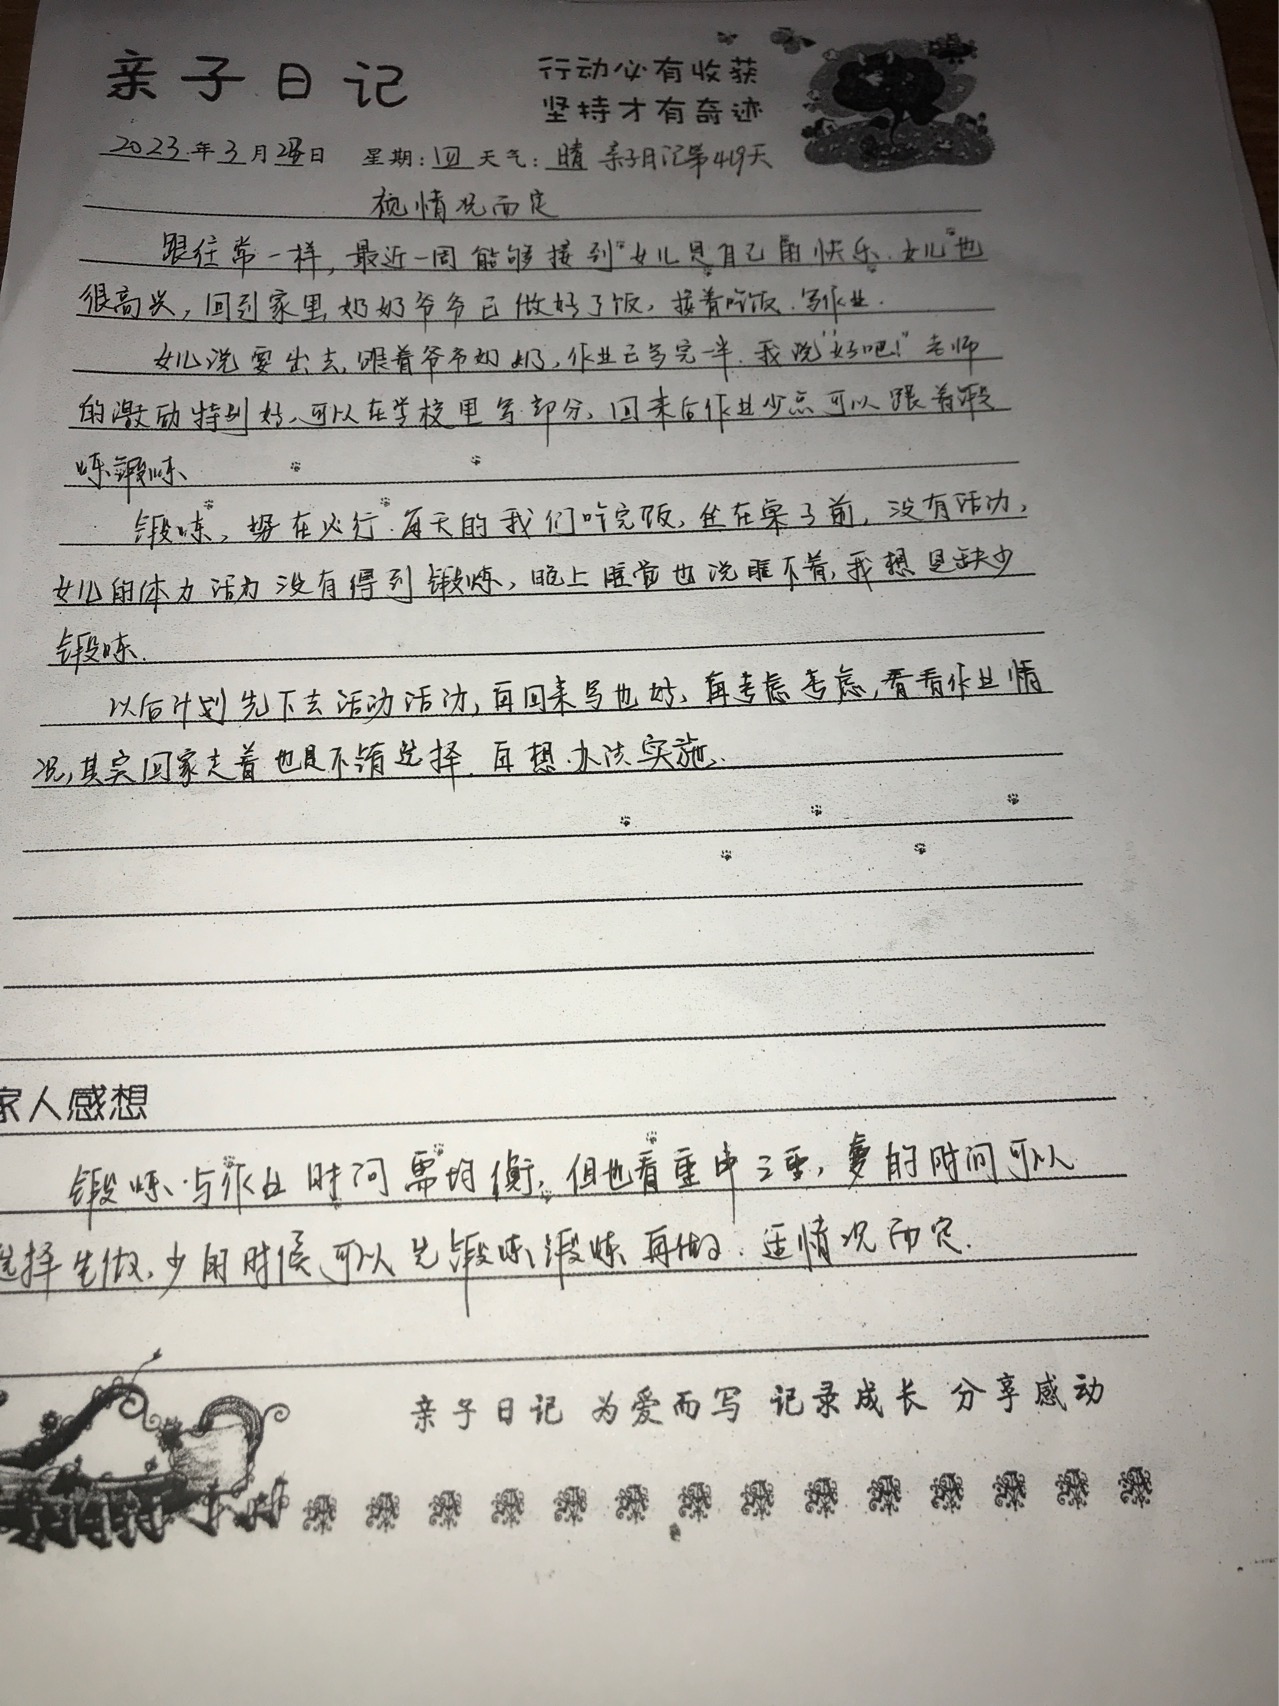 亲子日记
行动必有收获
坚持才有奇迹
2023年3月日 星期:四 天气:晴 亲子日记第419天
视情况而定
跟往常一样,最近一周能够接到女儿是自己的快乐.女儿也
很高兴,回到家里奶奶爷爷已做好了饭,接着吃饭.写作业.
女儿说要出去,跟着爷爷奶奶,作业已写完一半.我说"好吧!"老师
的激励特别好,可以在学校里写部分,回来后作业少点可以跟着锻
炼锻炼
锻炼,势在必行.每天的我们吃完饭,坐在桌子前,没有活动,
女儿的体力活力没有得到锻炼,晚上睡觉也说睡不着,我想是缺少
锻炼.
以后计划先下去活动活动,再回来写也好,再考虑考虑,看看作业情
况,其实回家走着也是不错选择.再想办法实施.
家人感想
锻炼与作业时间需均衡,但也看重中之重,多的时间可以
选择先做,少的时候可以先锻炼锻炼再做. 情况而定.
亲子日记 为爱而写 记录成长 分享感动